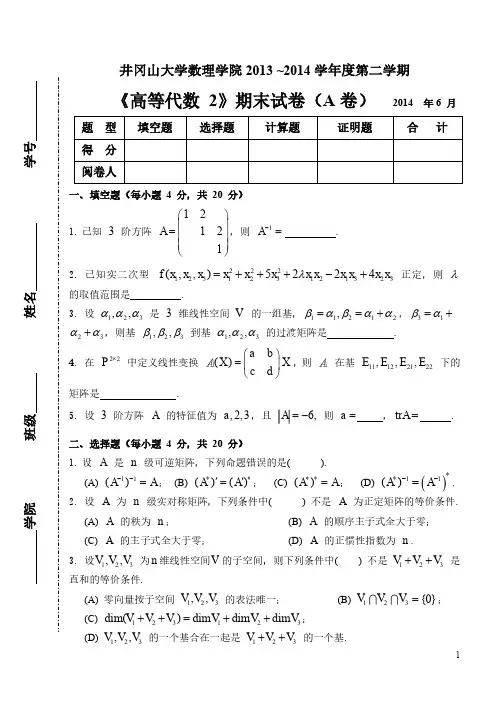 井冈山大学数理学院 2013 ~2014 学年度第二学期
《高等代数 2》期末试卷（A 卷） 2014 年 6 月
题 型 填空题 选择题 计算题 证明题 合 计
得 分
阅卷人
学院 班级 姓名 学号
一、填空题（每小题 4 分，共 20 分）
1. 已知 3 阶方阵 A=(1 2
1 2
1)，则 A⁻¹= .
2. 已知实二次型 f(x₁,x₂,x₃)=x₁²+x₂²+5x₃²+2λx₁x₂−2x₁x₃+4x₂x₃ 正定，则 λ
的取值范围是 .
3. 设 α₁,α₂,α₃ 是 3 维线性空间 V 的一组基，β₁=α₁,β₂=α₁+α₂, β₃=α₁+
α₂+α₃，则基 β₁,β₂,β₃ 到基 α₁,α₂,α₃ 的过渡矩阵是 .
4. 在 P²ˣ² 中定义线性变换 A(X)=(a b
c d)X，则 A 在基 E₁₁,E₁₂,E₂₁,E₂₂ 下的
矩阵是 .
5. 设 3 阶方阵 A 的特征值为 a,2,3，且 |A|=−6, 则 a= ，trA= .
二、选择题（每小题 4 分，共 20 分）
1. 设 A 是 n 级可逆矩阵，下列命题错误的是( ).
(A) (A⁻¹)⁻¹=A； (B) (A*)′=(A′)*； (C) (A*)*=A； (D) (A*)⁻¹=(A⁻¹)*.
2. 设 A 为 n 级实对称矩阵，下列条件中( ) 不是 A 为正定矩阵的等价条件.
(A) A 的秩为 n； (B) A 的顺序主子式全大于零；
(C) A 的主子式全大于零； (D) A 的正惯性指数为 n.
3. 设V₁,V₂,V₃ 为n维线性空间V的子空间，则下列条件中( ) 不是 V₁+V₂+V₃ 是
直和的等价条件.
(A) 零向量按子空间 V₁,V₂,V₃ 的表法唯一； (B) V₁⋂V₂⋂V₃={0}；
(C) dim(V₁+V₂+V₃)=dimV₁+dimV₂+dimV₃；
(D) V₁,V₂,V₃ 的一个基合在一起是 V₁+V₂+V₃ 的一个基.
1